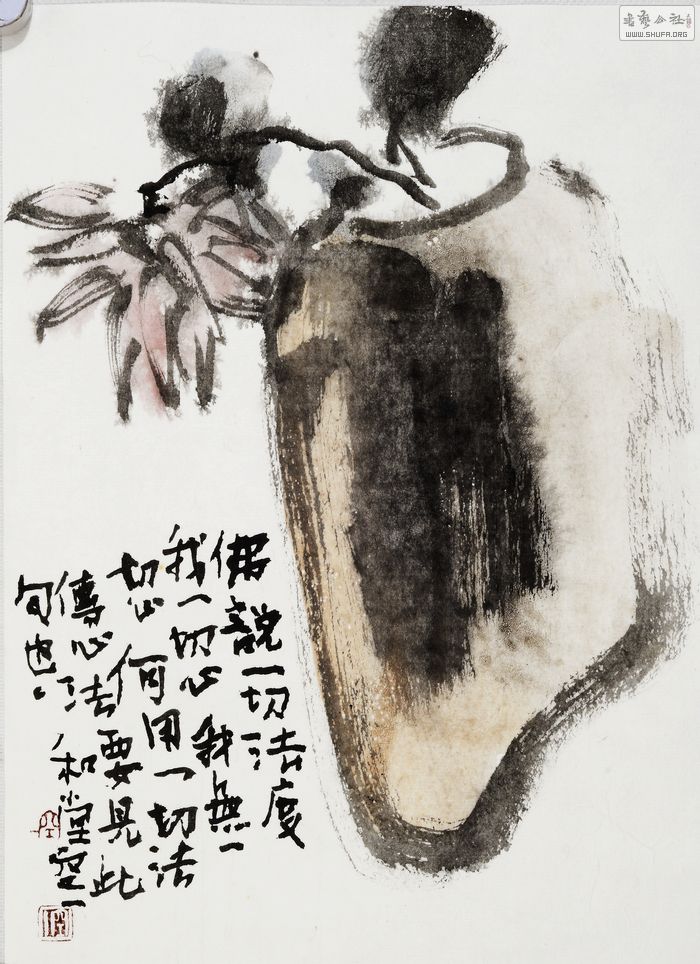 佛說一切法度
我一切心我無一
切心何用一切法
傳心法要見此
句也
和堂空一
書藝公社
WWW.SHUFA.ORG